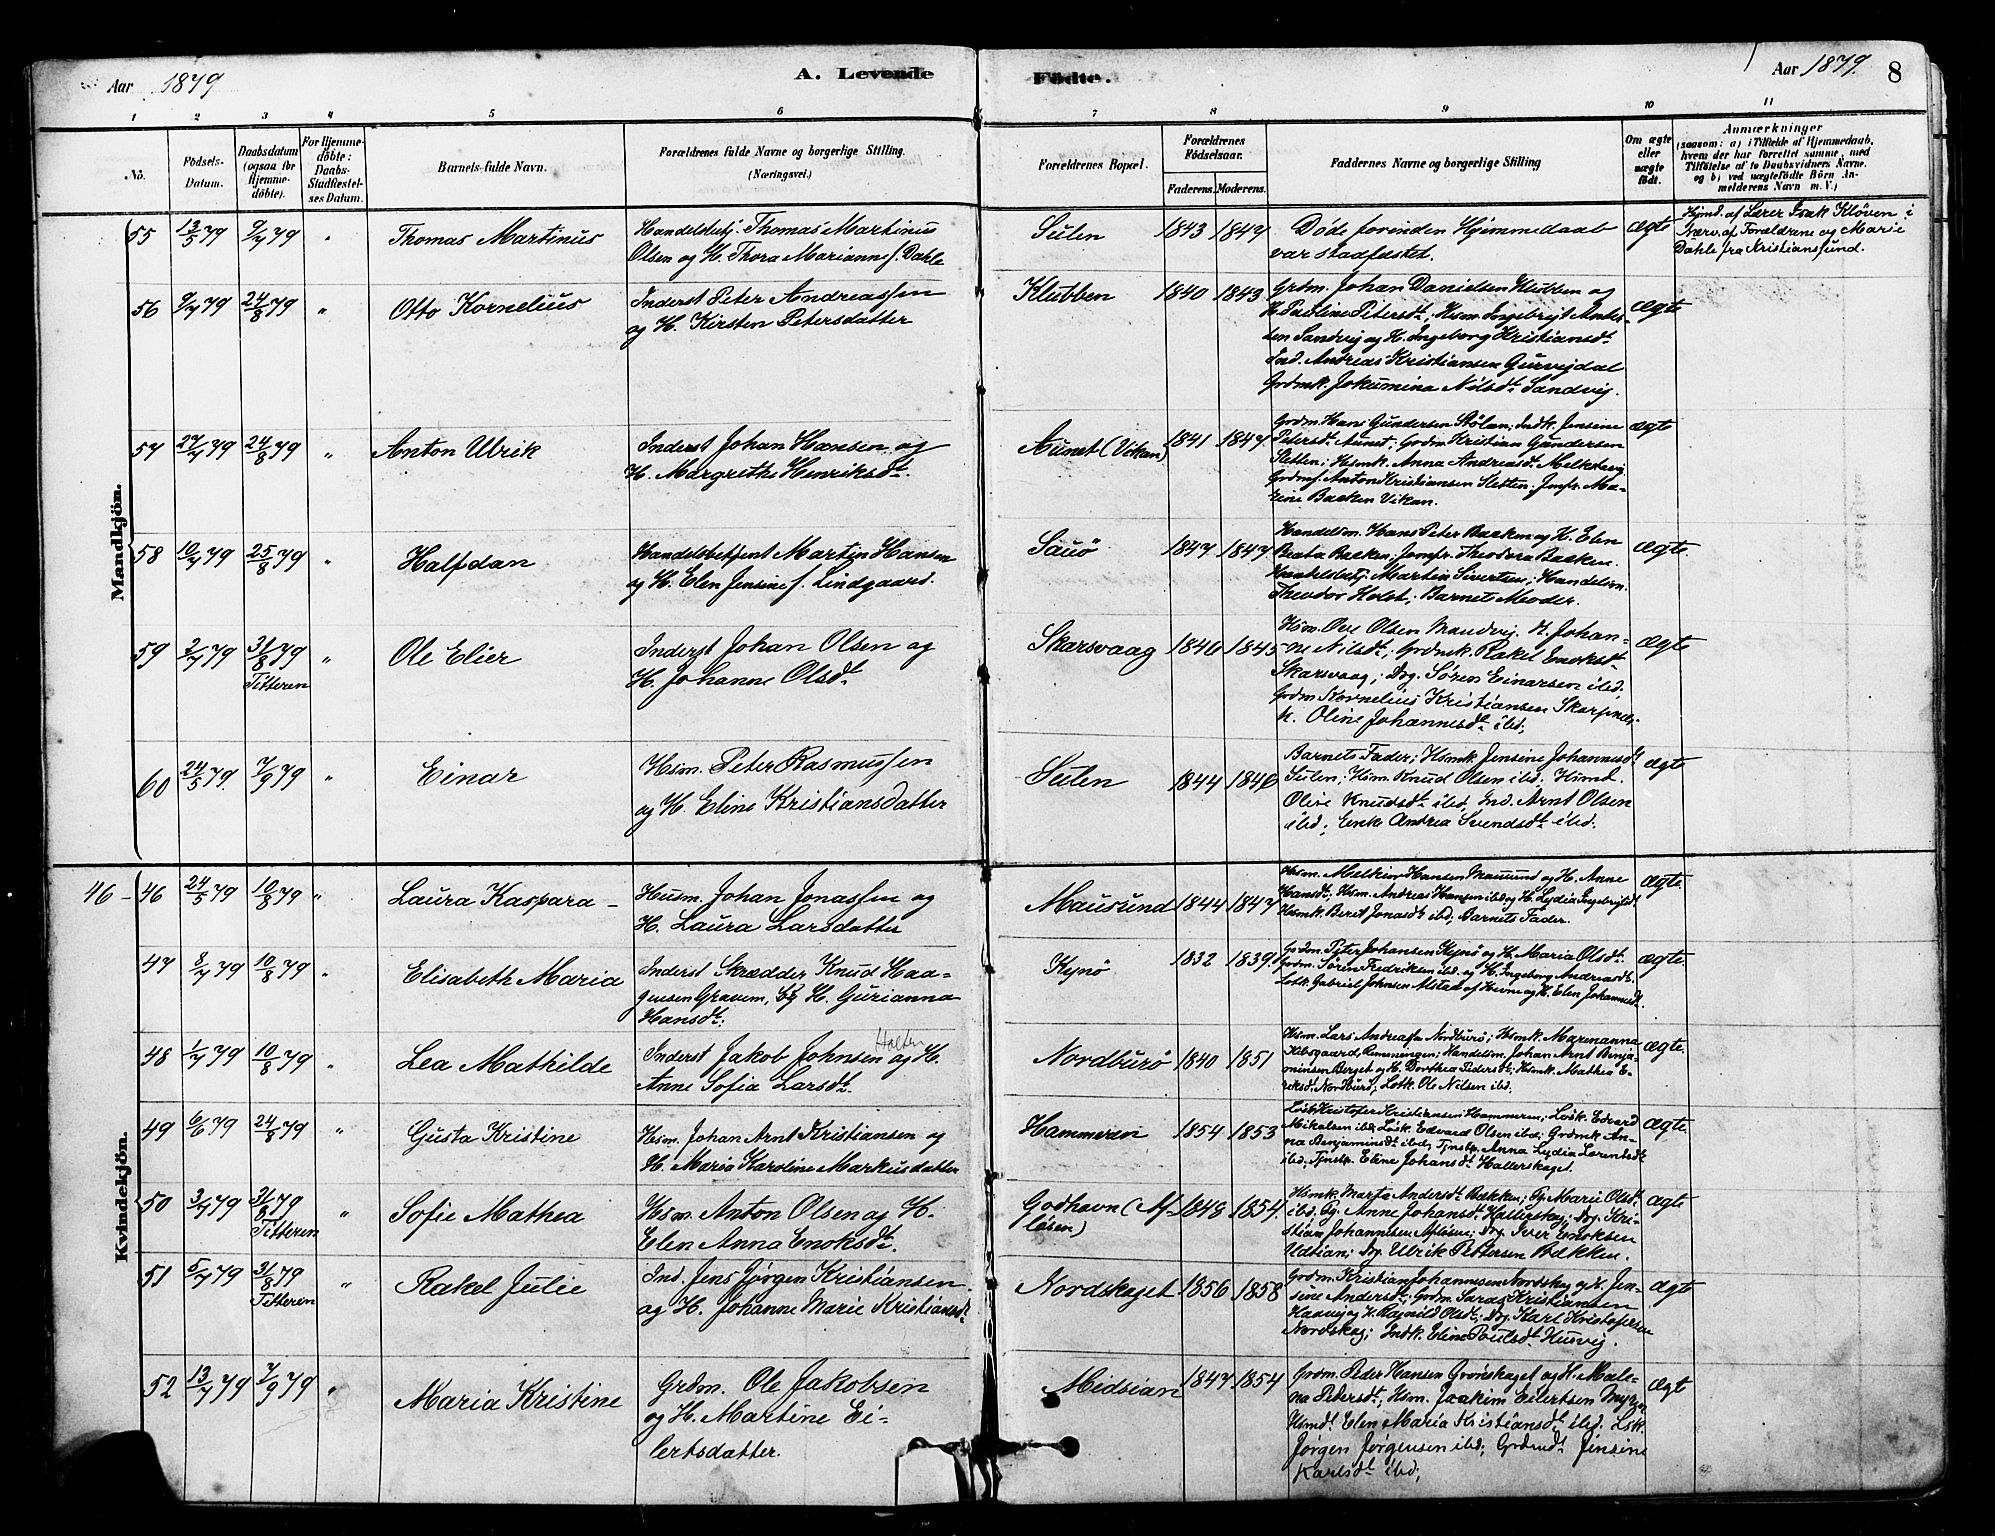 Aar 1879
A. Levende
Fødte.
Aar 1879.
8
1 2 3 4 5 6 7 8 9 10 11
No.
Födsels-
Datum.
Daabsdatum
(ogsaa for
Hjemme-
döbte).
For Hjemme-
döbte:
Daabs-
Stadfæstel-
ses Datum.
Barnets fulde Navn.
Forældrenes fulde Navne og borgerlige Stilling.
(Næringsvei.)
Forældrenes Bopæl.
Forældrenes
Födselsaar.
Faderens. Moderens.
Faddernes Navne og borgerlige Stilling
Om ægte
eller
uægte
födt.
Anmærkninger
(saasom: a) i Tilfælde af Hjemmedaab,
hvem der har forrettet samme, med
Tilföielse af to Daabsvidners Navne,
og b) ved uægtefödte Börn An-
melderens Navn m. V.)
Mandkjön.
55 13/5 79 9/7 79 " Thomas Martinus
Handelsbetj. Thomas Martinus
Olsen og H. Thora Marianne f. Dahle
Sulen 1843 1847
Døde forinden Hjemmedaab
var stadfæstet.
ægte
Hjmd. af Lærer Isak Kløven i
Nærv. af Forældrene og Marie
Dahle fra Kristiansund.
56 9/7 79 24/8 79 " Otto Kornelius
Inderst Peter Andreassen
og H. Kirsten Petersdatter
Klubben 1840 1843
Grdm. Johan Danielsen Klubben og
H. Pauline Petersdt; Hsm. Ingebrigt
Sandvig og H. Ingeborg Kristiansdt.
Ind. Andreas Kristiansen Gurvigdal
Grdmk. Jokumina Nilsdt Sandvig.
ægte
57 27/7 79 24/8 79 " Anton Ulrik
Inderst Johan Hansen og
H. Margrethe Henriksdt.
Aunet (Vikan) 1841 1847
Grdm. Hans Gundersen Stølan; Indk. Jensine
Petersdt Aunet; Grdm. Kristian Gundersen
Sletten; Hsmk. Anna Andreasdt
Anton Kristiansen Sletten; Jomfr. Ma-
rine Bakken Vikan.
ægte
58 10/7 79 25/8 79 " Halfdan
Handelsbetjent Martin Hansen
og H. Elen Jensine f. Lindgaard.
Sauø 1847 1847
Handelsm. Hans Peter Bakken og H. Elen
Beata Bakken; Jomfr. Theodora Bakken.
Handelsbetj. Martin Sivertsen; Handelsm.
Theodor Holst; Barnets Moder.
ægte
59 2/7 79 31/8 79 " Ole Elier
Titteren
Inderst Johan Olsen og
H. Johanne Olsdt
Skarsvaag 1846 1845
Hsm. Ove Olsen Mandvig. H. Johan-
ne Nilsdt; Grdmk. Rakel Enoksdt
Skarsvaag; Dрg. Søren Einarsen ibid.
Grdm. Kornelius Kristiansen
H. Oline Johannesdt ibid;
ægte
60 24/5 79. 7/9 79 " Einar
Hsm. Peter Rasmussen
og H. Eline Kristiansdatter
Sulen 1844 1846
Barnets Fader; Hsmk. Jensine Johannesdt
Sulen; Hsm. Knud Olsen ibid. Hsmd.
Oline Knudsdt ibid, Ind. Arnt Olsen
ibid; Enk. Andrea Svendsdt ibid.
ægte
Kvindekjön.
46 - 46 24/5 79 10/8 79 " Laura Kaspara -
Husm. Johan Jonassen og
H. Laura Larsdatter
Mausund 1844 1847
Hsm. Hansen Mausund og H. Anne
Hansdt; Hsm. Andreas Hansen ibid og H. Lydia
Hsmk. Beret Jonasdt ibid; Barnets Fader.
ægte.
47 8/7 79 10/8 79 " Elisabeth Maria
Inderst Skrædder Knud Haa-
gensen Gravem, og H. Gurianna
Hansdt;
Kynø 1832 1839.
Grdm. Peter Johansen Kynø og H. Maria Olsdt.
Grdm. Søren Fredriksen ibid. og H. Ingeborg Andreasdt
Løsk. Gabriel Johnsen Alstad af Hevne og H. Elen Johannesdt.
ægte.
48 1/7 79 10/8 79 " Lea Mathilde
Halten
Inderst Jakob Johnsen og H.
Anne Sofia Larsdt.
Nordburø 1840 1851
Hsm. Lars Andreassen Nordburø; Hsmk. Marianna
Handelsm. Johan Arnt Benja-
minsen Berget og H. Dorthea Pedersdt; Hsmk. Mathea E-
riksdt. Nordburø; Løsk. Ole Nilsen ibid.
ægte.
49 6/6 79 24/8 79 " Gusta Kristine
Hsm. Johan Arnt Kristiansen og
H. Maria Karoline Markusdatter
Hammeren 1854 1853
Løsk. Kristofer Kristiansen Hammeren; Løsk. Edvard
Mikalsen ibid; Løsk. Edvard Olsen ibid; Grdmk. An-
na Benjaminsdt ibid; Tjnstp. Anna Lydia Lorentsdt
ibid; Tjnstp. Eline Johansdt Hallerskaget.
ægte.
50 3/7 79 31/8 79 " Sofie Mathea
Titteren
Hsm. Anton Olsen og H.
Elen Anna Enoksdt.
Godhavn (Af-
løsen) 1848 1854.
Hsmk. Marta Andersdt Bekken; Pg. Marie Olsdt
ibid. Pg. Anne Johansdt Hallerskag; Dрg. Kri-
stian Johannesen Afløsen; Dрg. Iver Enoksen
Udtian; Dрg. Ulrik Pettersen Bekken.
ægte
51 5/7 79 31/8 79 " Rakel Julie
Titteren
Ind. Jens Jørgen Kristiansen
og H. Johanne Marie Kristiansdt.
Nordskaget 1856 1858
Grdm. Kristian Johannesen Nordskag og H. Jen-
sine Andersdt; Grdm. Kristiansen
og H. Ragnild Olsdt; Dрg. Karl Kristofersen
Nordskag; Indk. Eline Poulsdt Husvig.
ægte
52 13/7 79 7/9 79 " Maria Kristine
Grdm. Ole Jakobsen
og H. Martine Ei-
lertsdatter.
Midsian 1847 1854
Grdm. Peder Hansen Grønskaget og H. Male-
na Pedersdt; Hsm. Joakim Eilertsen Myren
Hsmdt Elen Maria Kristiansdt ibid. Løsk.
Jørgen Jørgensen ibid; Grdmdt Jensine
Karlsdt ibid;
ægt